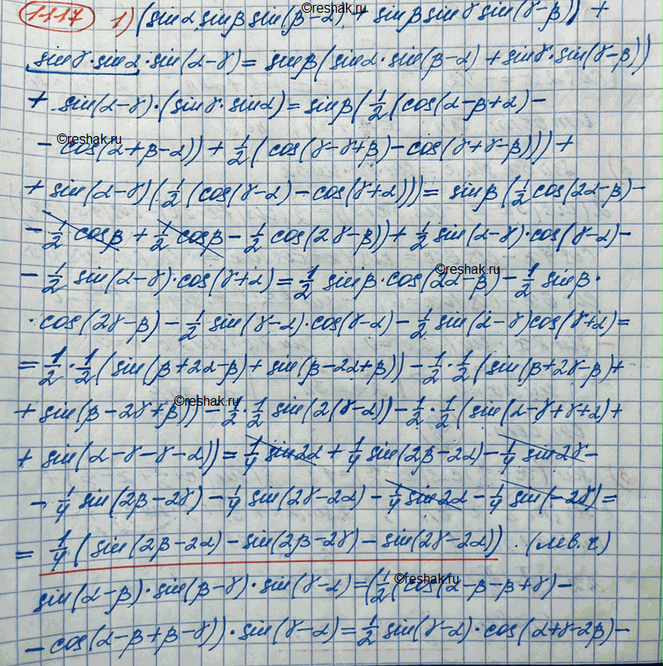 1117 1) (sinα sinβ sin(β-α) + sinβ sinγ sin(γ-β)) +
©reshak.ru
sinγ·sinα·sin(α-γ) = sinβ(sinα·sin(β-α) + sinγ·sin(γ-β))
+ sin(α-γ)·(sinγ·sinα) = sinβ(1/2(cos(α-β+α) -
©reshak.ru
- cos(α+β-α)) + 1/2(cos(γ-γ+β) - cos(γ+γ-β))) +
+ sin(α-γ)(1/2(cos(γ-α) - cos(γ+α))) = sinβ(1/2 cos(2α-β) -
- 1/2 cosβ + 1/2 cosβ - 1/2 cos(2γ-β)) + 1/2 sin(α-γ)·cos(γ-α) -
©reshak.ru
- 1/2 sin(α-γ)·cos(γ+α) = 1/2 sinβ·cos(2α-β) - 1/2 sinβ·
·cos(2γ-β) - 1/2 sin(γ-α)·cos(γ-α) - 1/2 sin(α-γ)cos(γ+α) =
= 1/2·1/2(sin(β+2α-β) + sin(β-2α+β)) - 1/2·1/2(sin(β+2γ-β) +
©reshak.ru
+ sin(β-2γ+β)) - 1/2·1/2 sin(2(γ-α)) - 1/2·1/2(sin(α-γ+γ+α) +
+ sin(α-γ-γ-α)) = 1/4 sin2α + 1/4 sin(2β-2α) - 1/4 sin2γ -
- 1/4 sin(2β-2γ) - 1/4 sin(2γ-2α) - 1/4 sin2α - 1/4 sin(-2γ) =
= 1/4(sin(2β-2α) - sin(2β-2γ) - sin(2γ-2α)). (лев.ч)
©reshak.ru
sin(α-β)·sin(β-γ)·sin(γ-α) = (1/2(cos(α-β-β+γ) -
- cos(α-β+β-γ))·sin(γ-α) = 1/2 sin(γ-α)·cos(α+γ-2β) -